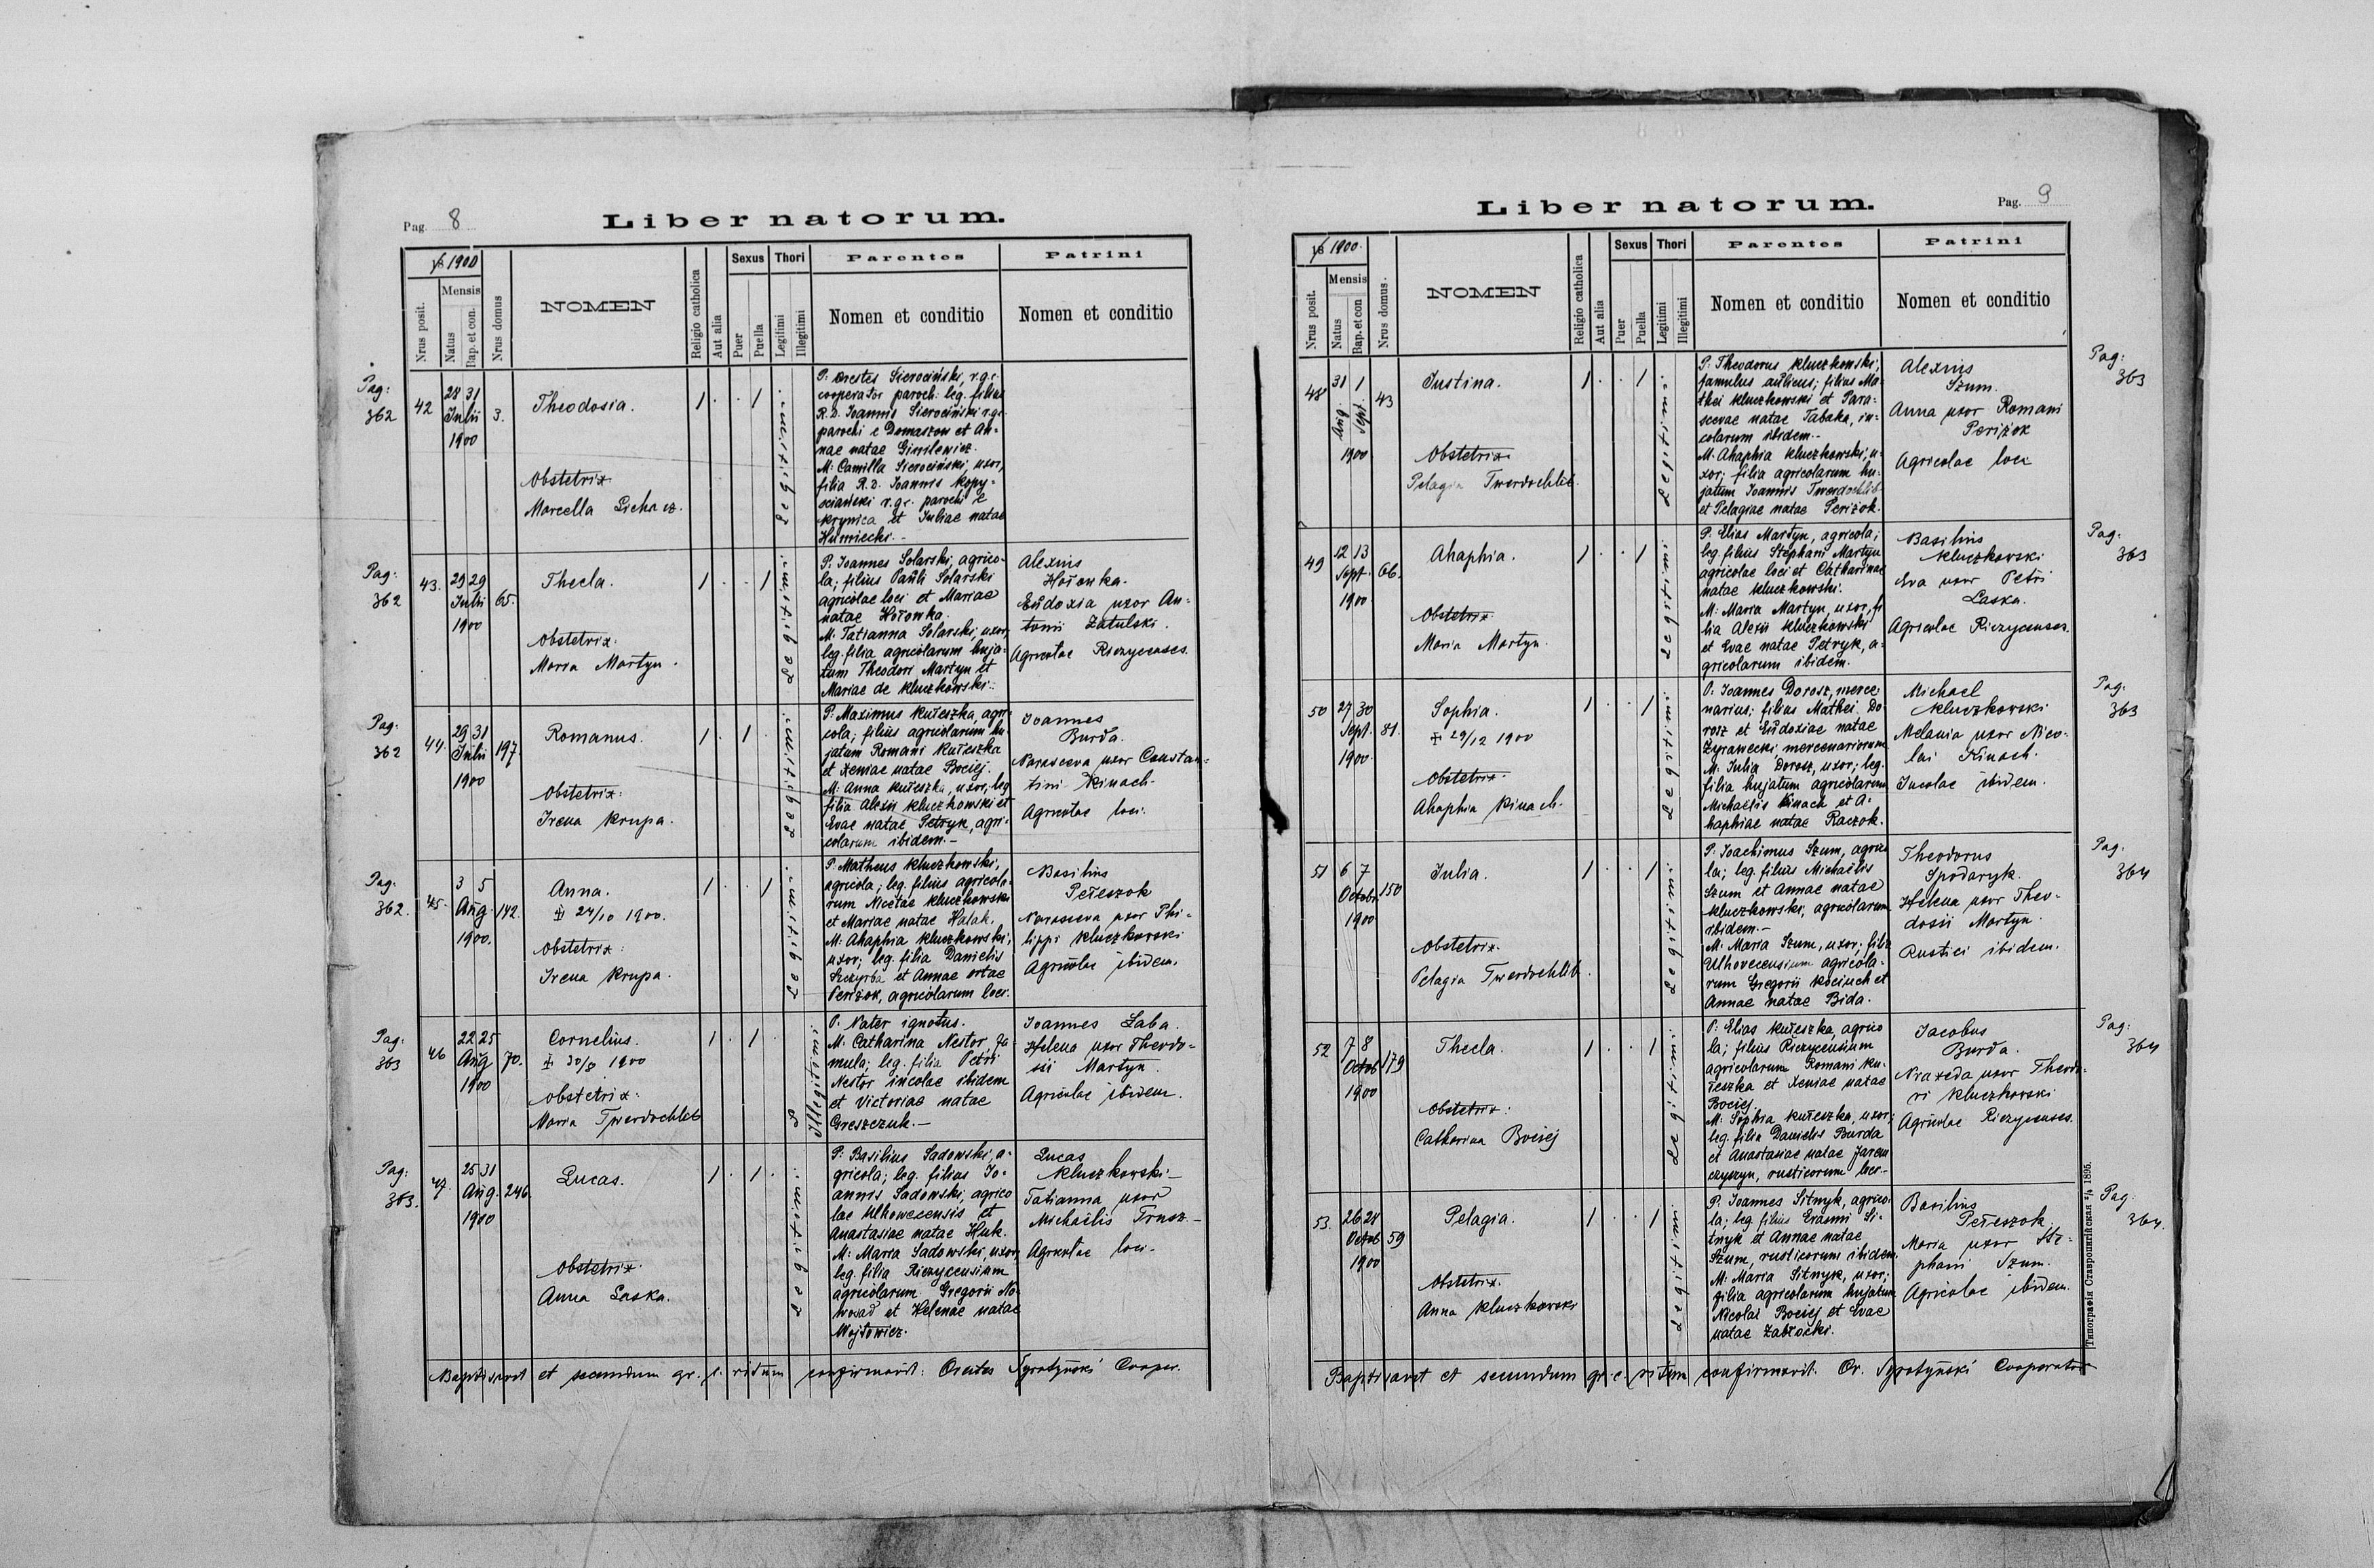 Pag. 8
Liber natorum.
18 1900
Nrus posit.
Mensis
Natus
Bap. et con.
Nrus domus
NOMEN
Religio catholica
Aut alia
Sexus
Puer
Puella
Thori
Legitimi
Illegitimi
Parentes
Nomen et conditio
Patrini
Nomen et conditio
Pag:
362
42
28 31
Julii
1900
3.
Theodosia.
Obstetrix
Marcella
1 . . 1
Legitimi
P: Orestes Sierociński, r.g.c.
cooperator paroch. leg. filius
R.D. Joannis Sierociński r.g.c.
parochi e Domaszow et An-
nae natae
M: Camilla Sierociński, uxor,
filia R.D. Joannis Kopy-
sciański r.g.c. parochi e
Krynica et Juliae natae
Humiecki.-
Pag:
362
43.
29 29
Julii
1900
65.
Thecla.
Obstetrix:
Maria Martyn.
1 . . 1
Legitimi
P: Joannes Solarski, agrico-
la; filius Pauli Solarski
agricolae loci et Mariae
natae Hołowka.
M: Tatianna Solarski, uxor,
leg. filia agricolarum huja-
tum Theodori Martyn et
Mariae de Kluczkowski.
Alexius
Hołowka.
Eudoxia uxor An-
tonii Zatulski.
Agricolae Rieczycenses.
Pag:
362
44.
29 31
Julii
1900
197.
Romanus.
Obstetrix:
Irena Krupa.
1 . 1
Legitimi
P: Maximus Kułeszka, agri-
cola; filius agricolarum hu-
jatum Romani Kułeszka
et Xeniae natae Bociej.
M: Anna Kułeszka, uxor, leg.
filia Alexii Kluczkowski et
Evae natae Petryk, agri-
colarum ibidem.-
Joannes
Burda.
Parasceva uxor Constan-
tini Kinach-
Agricolae loci.
Pag:
362.
45.
3 5
Aug.
1900.
142.
Anna.
‡ 24/10 1900.
Obstetrix:
Irena Krupa.
1 . . 1
Legitimi
P: Matheus Kluczkowski,
agricola; leg. filius agricola-
rum Nicetae Kluczkowski
et Mariae natae Halak.
M: Ahaphia Kluczkowski,
uxor; leg. filia Danielis
Szczyrba et Annae ortae
Periżok, agricolarum loci.
Basilius
Pełeszok
Parasceva uxor Phi-
lippi Kluczkowski
Agricolae ibidem.
Pag:
363
46
22 25
Aug
1900
70.
Cornelius.
‡ 30/8 1900
Obstetrix:
Maria Twerdochlib
1 . 1 .
8
Illegitimi
P: Pater ignotus.
M: Catharina Nestor, fa-
mula; leg. filia Petri
Nestor incolae ibidem
et Victoriae natae
Greszczuk.-
Joannes Łaba.
Helena uxor Theodo-
sii Martyn.
Agricolae ibidem.
Pag:
363.
47.
25 31
Aug.
1900
246.
Lucas.
Obstetrix.
Anna Laska.
1 . 1 .
Legitimi
P: Basilius Sadowski, a-
gricola; leg. filius Jo-
annis Sadowski, agrico
lae Ulhowecensis et
Anastasiae natae Huk.
M: Maria Sadowski, uxor,
leg. filia Rieczycensium
agricolarum Gregorii No-
wosad et Helenae natae
Wojtowicz.
Lucas
Kluczkowski-
Tatianna uxor
Michaëlis Trusz-
Agricolae loci-
Baptisavit et secundum gr. c. ritum confirmavit: Orestes Syrotyński Cooper.
Liber natorum.
Pag. 9
18 1900.
Nrus posit.
Mensis
Natus
Bap. et con
Nrus domus.
NOMEN
Religio catholica
Aut alia
Sexus
Puer
Puella
Thori
Legitimi
Illegitimi
Parentes
Nomen et conditio
Patrini
Nomen et conditio
48
31 1
Aug. Sept.
1900
43
Justina.
Obstetrix
Pelagia Twerdochlib.
1 . . 1
Legitimi
P: Theodorus Kluczkowski,
famulus aulicus; filius Ma-
thei Kluczkowski et Para-
scevae natae Tabaka, in-
colarum ibidem.-
M: Ahaphia Kluczkowski, u-
xor; filia agricolarum hu-
jatum Joannis Twerdochlib
et Pelagiae natae Periżok.
Alexius
Szum.
Anna uxor Romani
Periżok
Agricolae loci
Pag:
363
49
12 13
Sept.
1900
66.
Ahaphia.
Obstetrix
Maria Martyn.
1 . . 1
Legitimi
P: Elias Martyn, agricola;
leg. filius Stephani Martyn
agricolae loci et Catharinae
natae Kluczkowski.
M: Maria Martyn, uxor, fi
lia Alexii Kluczkowski
et Evae natae Petryk, a-
gricolarum ibidem.
Basilius
Kluczkowski
Eva uxor Petri
Laska.
Agricolae Rieczycenses.
Pag:
363
50
27 30
Sept.
1900
81.
Sophia.
‡ 29/12 1900
Obstetrix.
Ahaphia Kinach.
1 . . 1
Legitimi
P: Joannes Dorosz, merce-
narius; filius Mathei Do
rosz et Eudoxiae natae
Żyraniecki mercenariorum
M: Julia Dorosz, uxor; leg.
filia hujatum agricolarum
Michaëlis Kinach et A-
haphiae natae Raczok.
Michael
Kluczkowski
Melania uxor Nico-
lai Kinach.
Incolae ibidem.
Pag:
363
51
6 7
Octobr.
1900
150
Julia.
Obstetrix.
Pelagia Twerdochlib.
1 . . 1
Legitimi
P: Joachimus Szum, agrico
la; leg. filius Michaëlis
Szum et Annae natae
Kluczkowski, agricolarum
ibidem.-
M: Maria Szum, uxor; filia
Ulhovecensium agricola-
rum Gregorii Kociuch et
Annae natae Bida.
Theodorus
Spodaryk.
Helena uxor Theo-
dosii Martyn.
Rustici ibidem.
Pag:
364
52
7 8
Octob
1900
179
Thecla.
Obstetrix:
Catharina Bociej
1 . . 1
Legitimi
P: Elias Kułeszka, agrico
la; filius Rieczycensium
agricolarum Romani Ku-
łeszka et Xeniae natae
Bociej.
M: Sophia Kułeszka, uxor;
leg. filia Danielis Burda
et Anastasiae natae Jarem
czyszyn, rusticorum loci-
Jacobus
Burda.
Praxeda uxor Theodo-
ri Kluczkowski
Agricolae Rieczycenses.
Pag:
364
53.
26 28
Octob
1900
59
Pelagia.
Obstetrix.
Anna Kluczkowski
1 . . 1
Legitimi
P: Joannes Sitnyk, agrico-
la; leg. filius Erasmi Si-
tnyk et Annae natae
Szum, rusticorum ibidem.
M: Maria Sitnyk, uxor;
filia agricolarum hujatum
Nicolai Bociej et Evae
natae Zabłocki.
Basilius
Pełeszok.
Maria uxor Ste-
phani Szum.
Agricolae ibidem.
Pag:
364.
Baptisavit et secundum gr. c. ritum confirmavit. Or. Syrotyński Cooperator
Типографія Ставропигійская 1895.